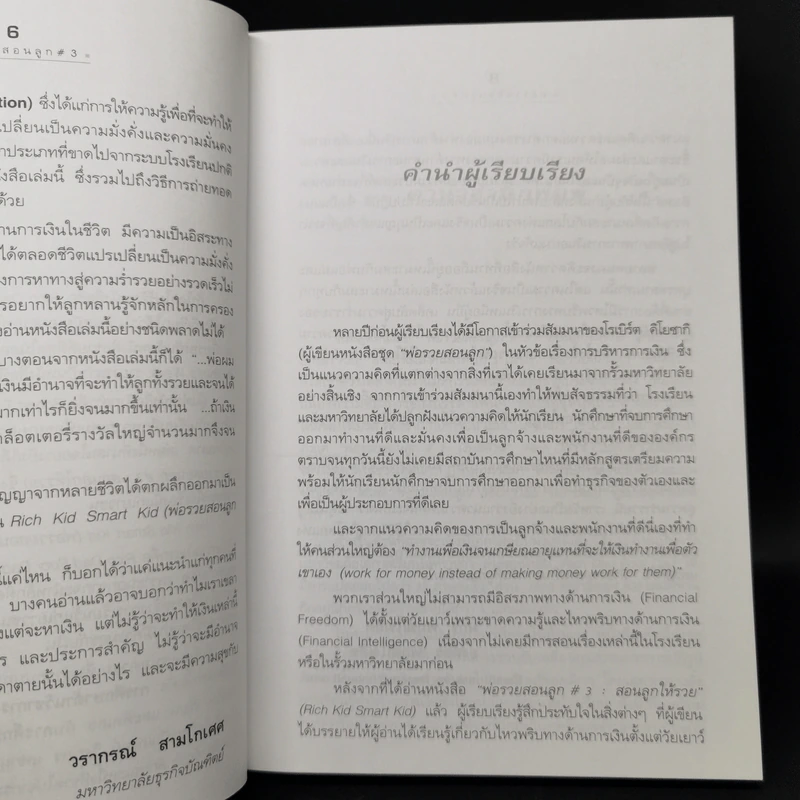 6
สอนลูก # 3
tion) ซึ่งได้แก่การให้ความรู้เพื่อที่จะทำให้
เปลี่ยนเป็นความมั่งคั่งและความมั่นคง
าประเภทที่ขาดไปจากระบบโรงเรียนปกติ
งสือเล่มนี้ ซึ่งรวมไปถึงวิธีการถ่ายทอด
ด้วย
านการเงินในชีวิต มีความเป็นอิสระทาง
ได้ตลอดชีวิตแปรเปลี่ยนเป็นความมั่งคั่ง
งการหาทางสู่ความร่ำรวยอย่างรวดเร็วไม่
รอยากให้ลูกหลานรู้จักหลักในการครอง
งอ่านหนังสือเล่มนี้อย่างชนิดพลาดไม่ได้
บางตอนจากหนังสือเล่มนี้ก็ได้ "...พ่อผม
เงินมีอำนาจที่จะทำให้ลูกทั้งรวยและจนได้
มากเท่าไรก็ยิ่งจนมากขึ้นเท่านั้น ...ถ้าเงิน
ล็อตเตอรี่รางวัลใหญ่จำนวนมากจึงจน
ญญาจากหลายชีวิตได้ตกผลึกออกมาเป็น
น Rich Kid Smart Kid (พ่อรวยสอนลูก
นี้แค่ไหน ก็บอกได้ว่าแค่แนะนำแก่ทุกคนที่
บางคนอ่านแล้วอาจบอกว่าทำไมเราเขลา
งแต่จะหาเงิน แต่ไม่รู้ว่าจะทำให้เงินเหล่านี้
ร และประการสำคัญ ไม่รู้ว่าจะมีอำนาจ
าตายนั้นได้อย่างไร และจะมีความสุขกับ
วรากรณ์ สามโกเศศ
มหาวิทยาลัยธุรกิจบัณฑิตย์
คำนำผู้เรียบเรียง
หลายปีก่อนผู้เรียบเรียงได้มีโอกาสเข้าร่วมสัมมนาของโรเบิร์ต คิโยซากิ
(ผู้เขียนหนังสือชุด "พ่อรวยสอนลูก") ในหัวข้อเรื่องการบริหารการเงิน ซึ่ง
เป็นแนวความคิดที่แตกต่างจากสิ่งที่เราได้เคยเรียนมาจากรั้วมหาวิทยาลัย
อย่างสิ้นเชิง จากการเข้าร่วมสัมมนานี้เองทำให้พบสัจธรรมที่ว่า โรงเรียน
และมหาวิทยาลัยได้ปลูกฝังแนวความคิดให้นักเรียน นักศึกษาที่จบการศึกษา
ออกมาทำงานที่ดีและมั่นคงเพื่อเป็นลูกจ้างและพนักงานที่ดีขององค์กร
ตราบจนทุกวันนี้ยังไม่เคยมีสถาบันการศึกษาไหนที่มีหลักสูตรเตรียมความ
พร้อมให้นักเรียนนักศึกษาจบการศึกษาออกมาเพื่อทำธุรกิจของตัวเองและ
เพื่อเป็นผู้ประกอบการที่ดีเลย
และจากแนวความคิดของการเป็นลูกจ้างและพนักงานที่ดีนี่เองที่ทำ
ให้คนส่วนใหญ่ต้อง "ทำงานเพื่อเงินจนเกษียณอายุแทนที่จะให้เงินทำงานเพื่อตัว
เขาเอง (work for money instead of making money work for them)"
พวกเราส่วนใหญ่ไม่สามารถมีอิสรภาพทางด้านการเงิน (Financial
Freedom) ได้ตั้งแต่วัยเยาว์เพราะขาดความรู้และไหวพริบทางด้านการเงิน
(Financial Intelligence) เนื่องจากไม่เคยมีการสอนเรื่องเหล่านี้ในโรงเรียน
หรือในรั้วมหาวิทยาลัยมาก่อน
หลังจากที่ได้อ่านหนังสือ "พ่อรวยสอนลูก # 3 : สอนลูกให้รวย"
(Rich Kid Smart Kid) แล้ว ผู้เรียบเรียงรู้สึกประทับใจในสิ่งต่างๆ ที่ผู้เขียน
ได้บรรยายให้ผู้อ่านได้เรียนรู้เกี่ยวกับไหวพริบทางด้านการเงินตั้งแต่วัยเยาว์